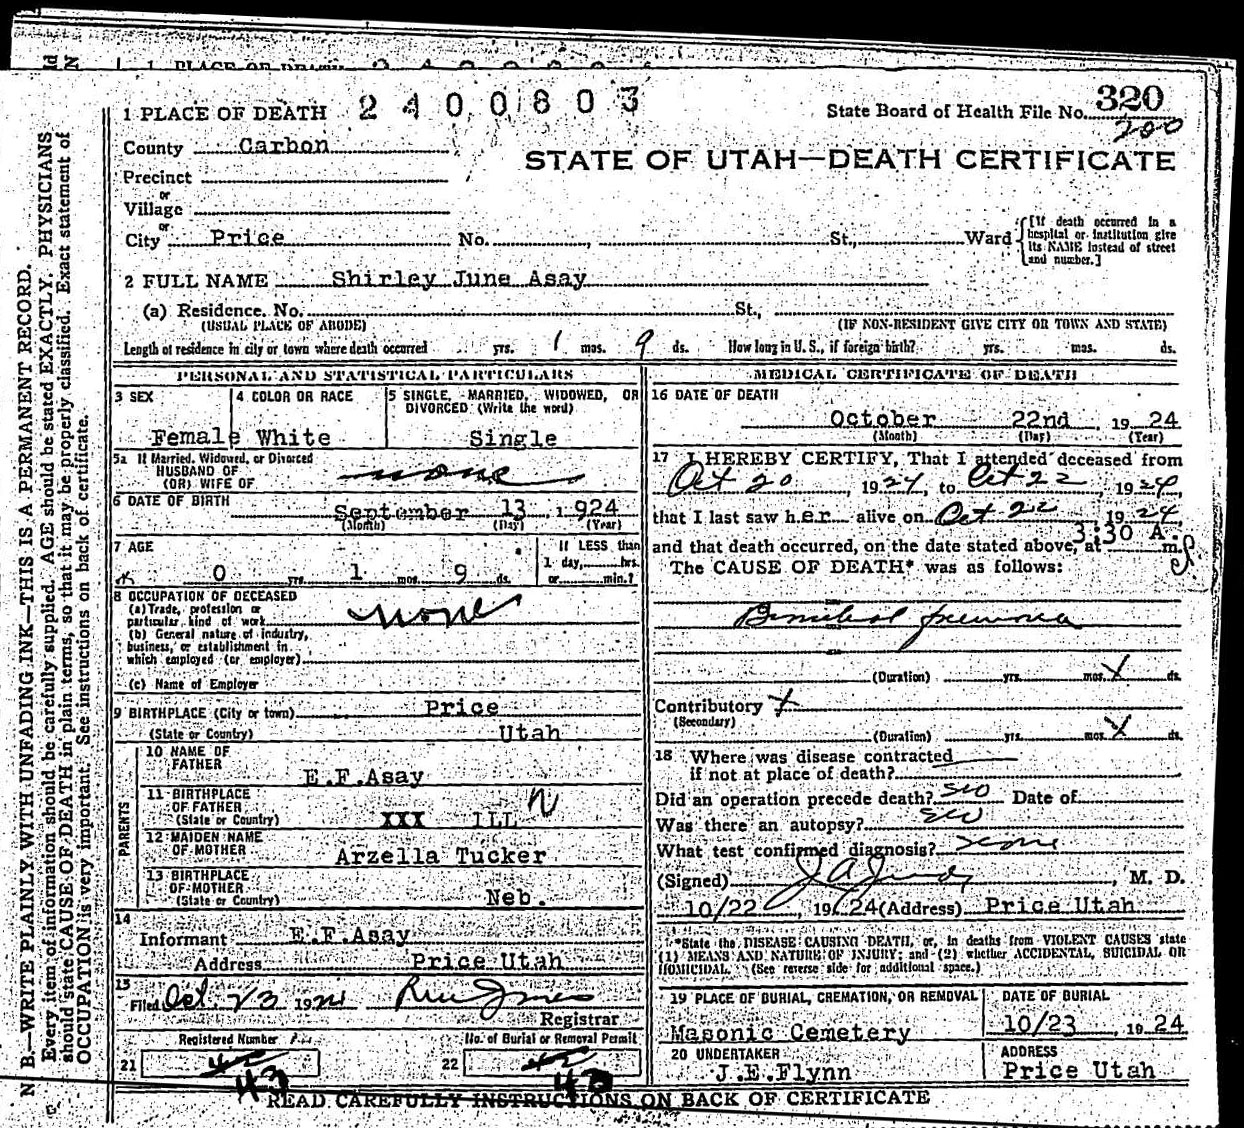 1 PLACE OF DEATH 2400803
State Board of Health File No. 320
200
County Carbon
STATE OF UTAH—DEATH CERTIFICATE
Precinct
or
Village
or
City Price No. , St., Ward
[If death occurred in a
hospital or institution give
its NAME instead of street
and number.]
2 FULL NAME Shirley June Asay
(a) Residence. No. St.,
(USUAL PLACE OF ABODE) (IF NON-RESIDENT GIVE CITY OR TOWN AND STATE)
Length of residence in city or town where death occurred yrs. 1 mos. 9 ds. How long in U. S., if foreign birth? yrs. mos. ds.
PERSONAL AND STATISTICAL PARTICULARS
3 SEX
Female
4 COLOR OR RACE
White
5 SINGLE, MARRIED, WIDOWED, OR
DIVORCED (Write the word)
Single
5a If Married, Widowed, or Divorced
HUSBAND OF
(OR) WIFE OF none
6 DATE OF BIRTH
September 13 1924
(Month) (Day) (Year)
7 AGE
0 yrs. 1 mos. 9 ds.
If LESS than
1 day, hrs.
or min.?
8 OCCUPATION OF DECEASED
(a) Trade, profession or
particular kind of work none
(b) General nature of industry,
business, or establishment in
which employed (or employer)
(c) Name of Employer
9 BIRTHPLACE (City or town) Price
(State or Country) Utah
PARENTS
10 NAME OF
FATHER
E.F.Asay
11 BIRTHPLACE
OF FATHER
(State or Country) XXX iLL
12 MAIDEN NAME
OF MOTHER
Arzella Tucker
13 BIRTHPLACE
OF MOTHER
(State or Country) Neb.
14
Informant E.F.Asay
Address Price Utah
15
Filed Oct. 23 1924
Registrar
Registered Number
21 42
43
No. of Burial or Removal Permit
22 42
43
MEDICAL CERTIFICATE OF DEATH
16 DATE OF DEATH
October 22nd, 1924
(Month) (Day) (Year)
17 I HEREBY CERTIFY, That I attended deceased from
Oct 20, 1924, to Oct 22, 1924,
that I last saw her alive on Oct 22 1924,
and that death occurred, on the date stated above, at 3:30 A. m.
The CAUSE OF DEATH* was as follows:
(Duration) yrs. mos. X ds.
Contributory X
(Secondary)
(Duration) yrs. mos. X ds.
18 Where was disease contracted
if not at place of death?
Did an operation precede death? no Date of
Was there an autopsy? no
What test confirmed diagnosis? none
(Signed) , M. D.
10/22, 1924 (Address) Price Utah
*State the DISEASE CAUSING DEATH, or, in deaths from VIOLENT CAUSES state
(1) MEANS AND NATURE OF INJURY; and (2) whether ACCIDENTAL, SUICIDAL OR
HOMICIDAL. (See reverse side for additional space.)
19 PLACE OF BURIAL, CREMATION, OR REMOVAL
Masonic Cemetery
DATE OF BURIAL
10/23, 1924
20 UNDERTAKER
J.E.Flynn
ADDRESS
Price Utah
READ CAREFULLY INSTRUCTIONS ON BACK OF CERTIFICATE
N. B.—WRITE PLAINLY WITH UNFADING INK—THIS IS A PERMANENT RECORD.
Every item of information should be carefully supplied. AGE should be stated EXACTLY. PHYSICIANS
should state CAUSE OF DEATH in plain terms, so that it may be properly classified. Exact statement of
OCCUPATION is very important. See instructions on back of certificate.